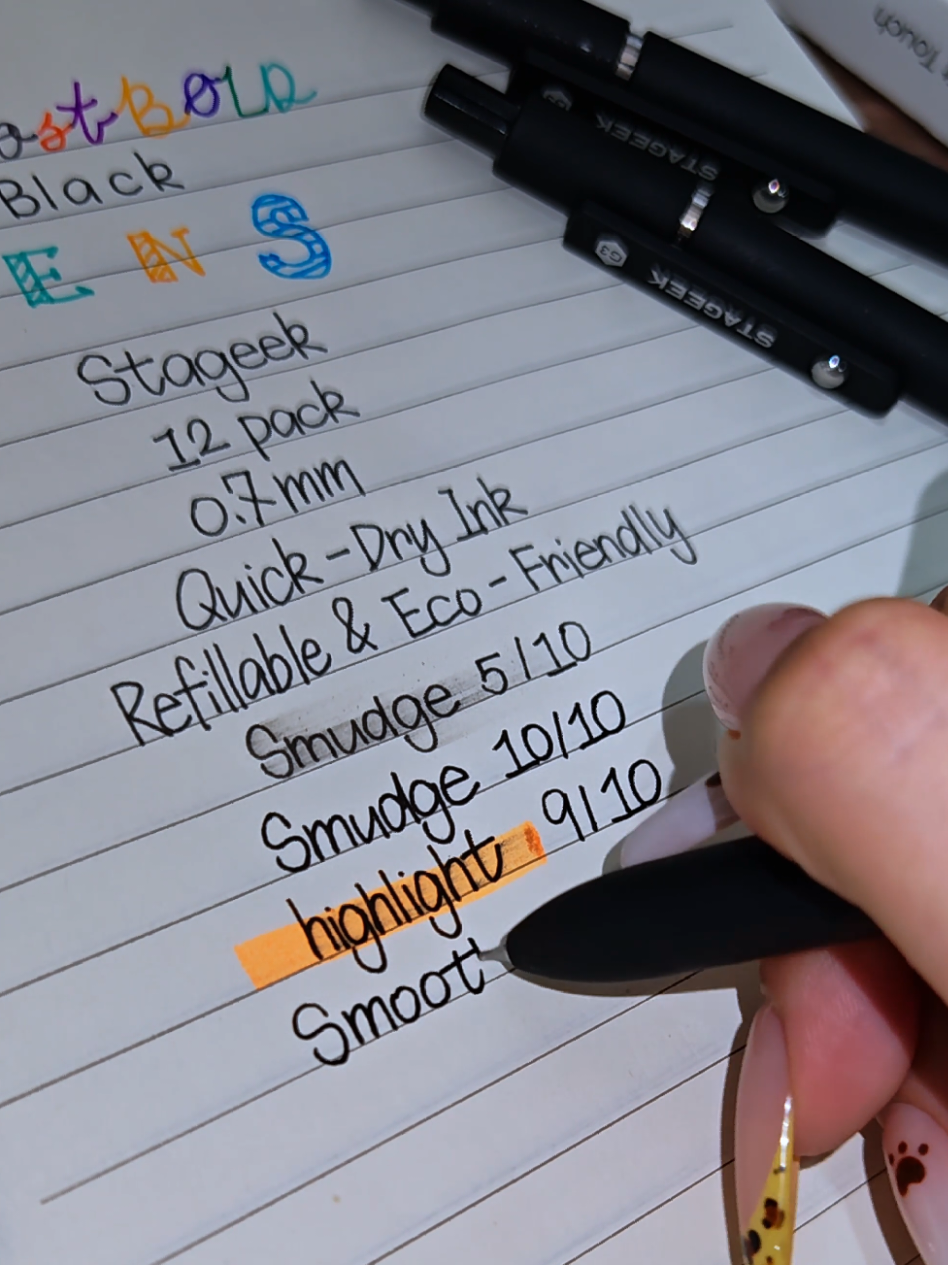 ast BOLD
Black
ENS
Stageek
12 pack
0.7mm
Quick-Dry Ink
Refillable & Eco-Friendly
Smudge 5/10
Smudge 10/10
highlight 9/10
Smoot
STAGEEK
G3 STAGEEK
Touch